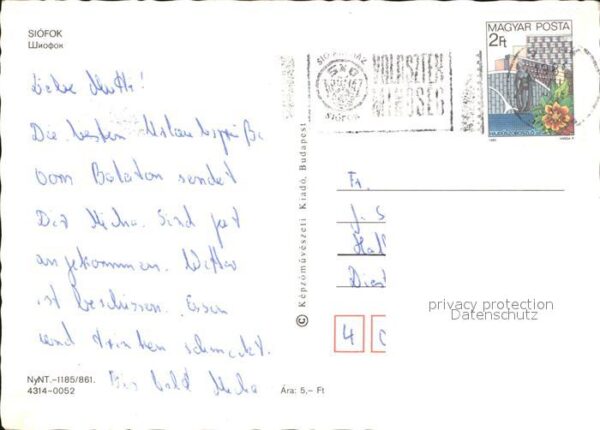 SIÓFOK
Шиофок
Liebe Mutti!
Die besten Urlaubsgrüße
vom Balaton sendet
Dir Micha. Sind gut
angekommen. Wetter
ist beschissen. Essen
und trinken schmeckt.
Bis bald Micha
NyNT.–1185/861.
4314–0052
Ára: 5,– Ft
© Képzőművészeti Kiadó, Budapest
SIÓFOK
MAGYAR POSTA
2Ft
HAJDÚSZOBOSZLÓ
Fr.
J. S
Hal
Dies
4
privacy protection
Datenschutz